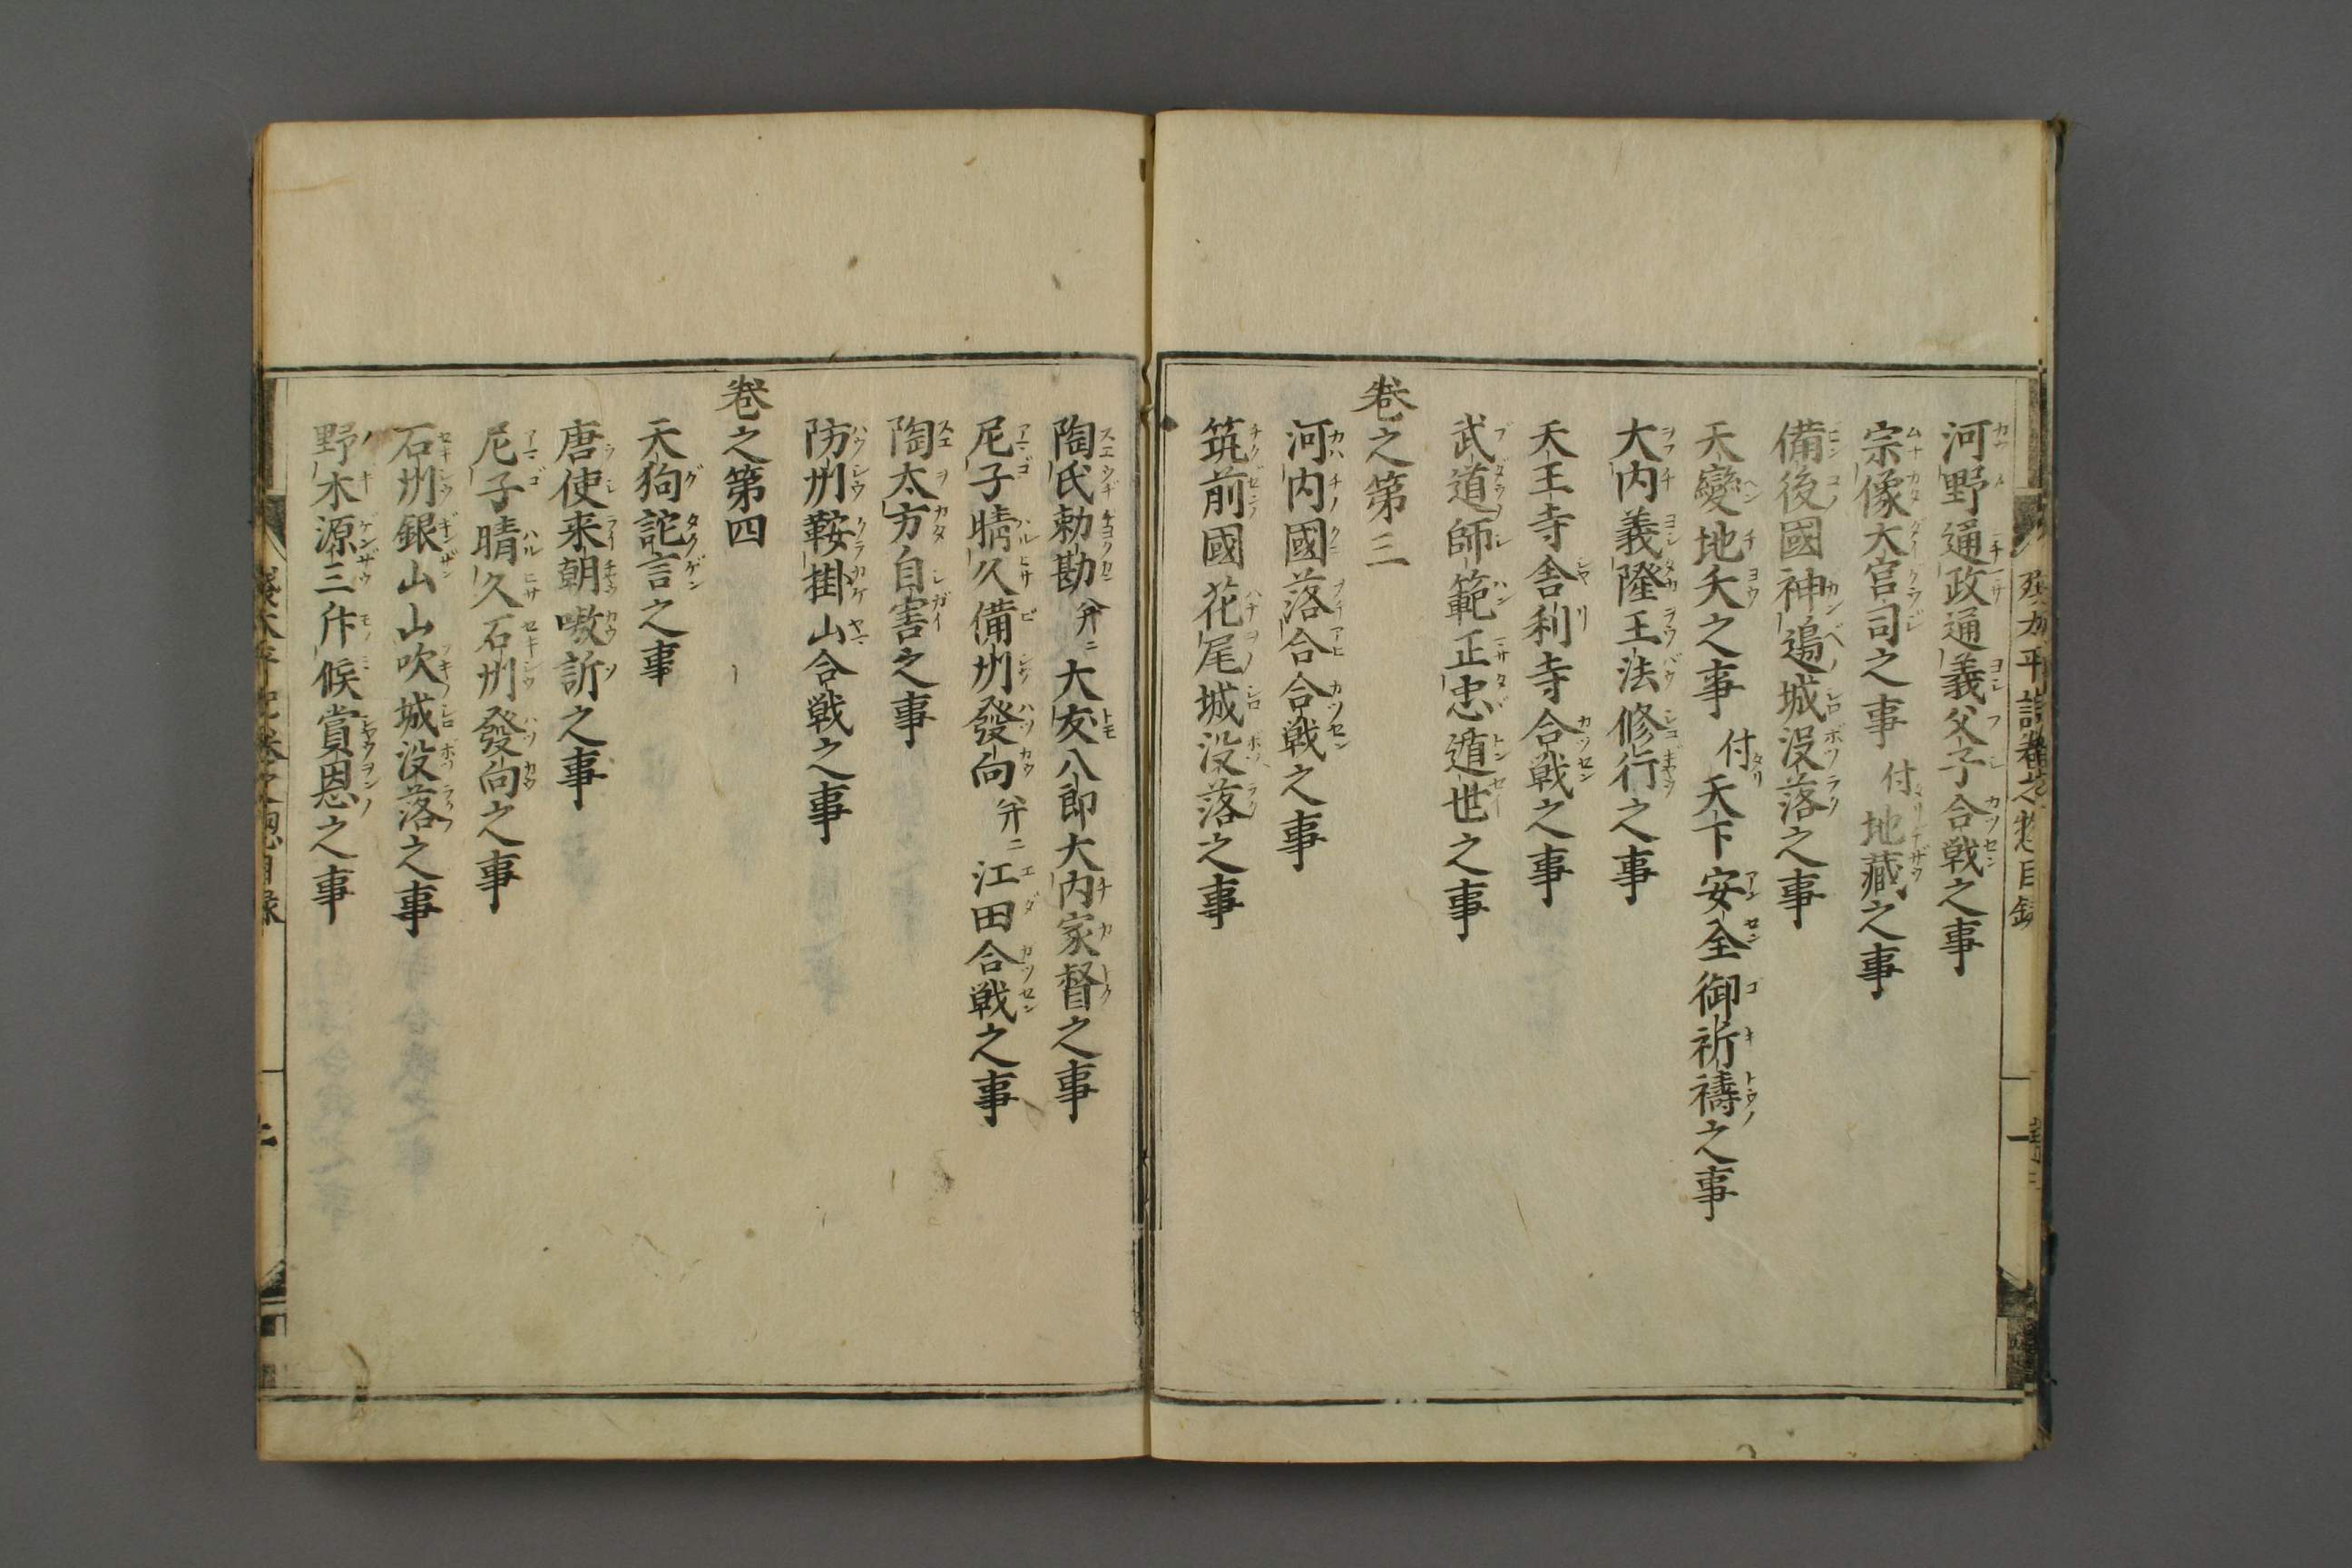 河野通政通義父子合戦之事
宗像大宮司之事 付 地藏之事
備後國神邉城没落之事
天變地夭之事 付 天下安全御祈禱之事
大内義隆王法修行之事
天王寺舎利寺合戦之事
武道師範正忠遁世之事
巻之第三
河内國落合合戦之事
筑前國花尾城没落之事
陶氏勅勘 并ニ 大友八郎大内家督之事
尼子晴久備州發向 并ニ 江田合戦之事
陶太方自害之事
防州鞍掛山合戦之事
巻之第四
天狗詫言之事
唐使来朝嗷訴之事
尼子晴久石州發向之事
石州銀山山吹城没落之事
野木源三作候賞恩之事